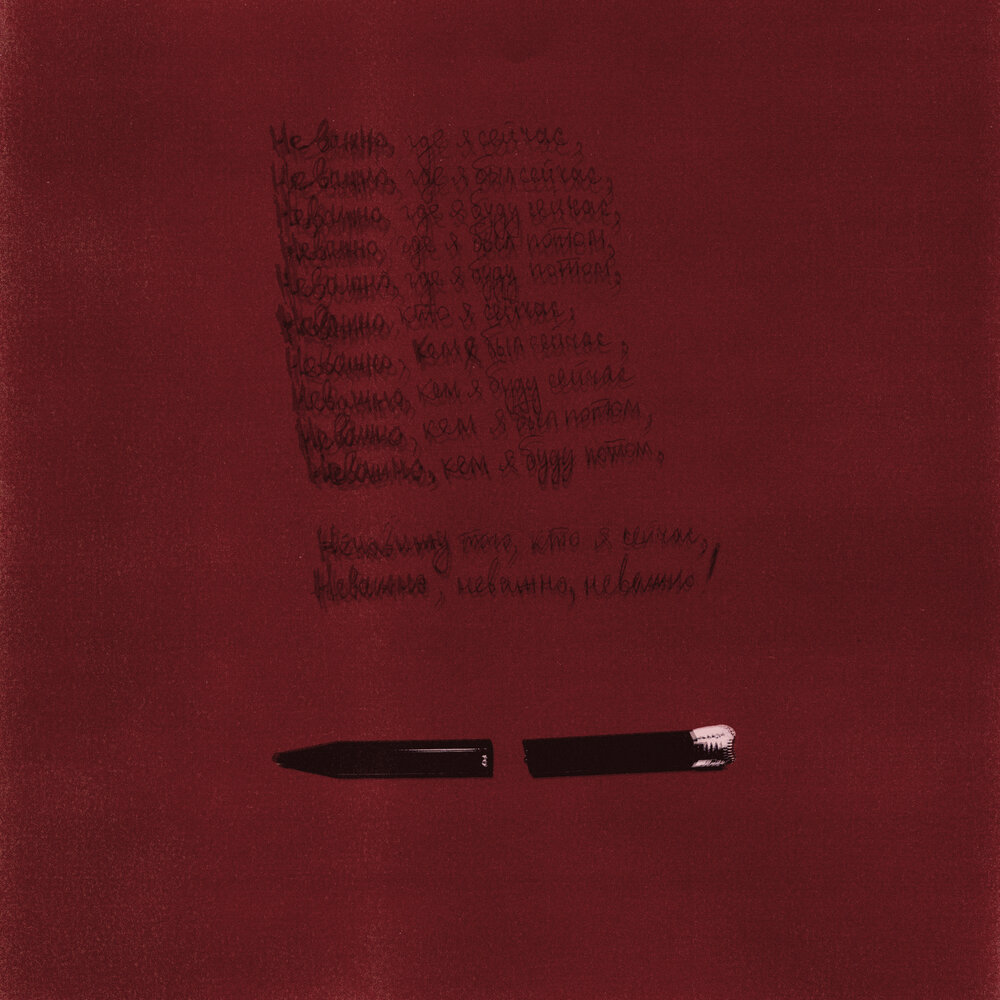 Неважно, где я сейчас,
Неважно, где я был сейчас,
Неважно, где я буду сейчас,
Неважно, где я был потом,
Неважно, где я буду потом,
Неважно, кто я сейчас,
Неважно, кем я был сейчас,
Неважно, кем я буду сейчас
Неважно, кем я был потом,
Неважно, кем я буду потом,
Ненавижу того, кто я сейчас,
Неважно, неважно, неважно!